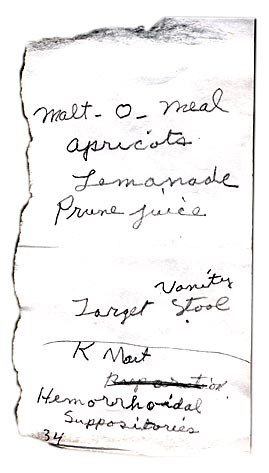 Malt-O-Meal
apricots
Lemonade
Prune juice
Vanity
Target Stool
K Mart
Hemorrhoidal
Suppositories
34